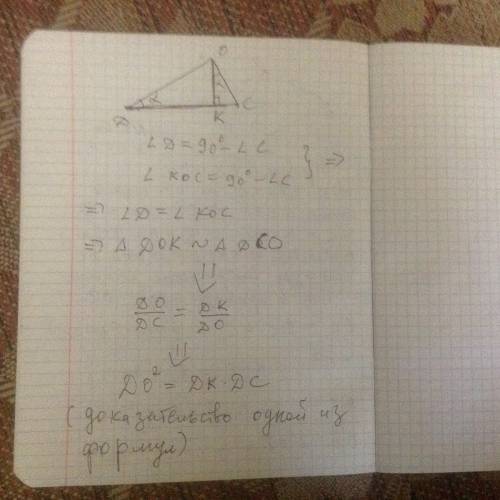 O
α
D K C
∠D = 90° - ∠C
∠KOC = 90° - ∠C } ⇒
⇒ ∠D = ∠KOC
⇒ Δ DOK ~ Δ DCO
⇓
DO/DC = DK/DO
⇓
DO² = DK·DC
(доказательство одной из
формул)